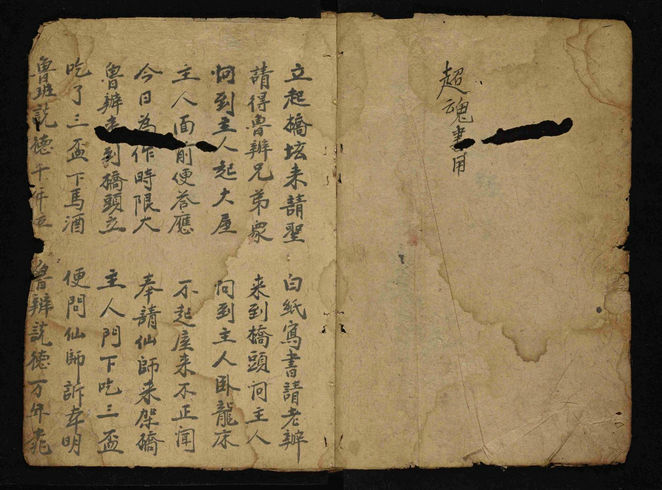 超魂書用
立起橋坛来請聖 白紙寫書請老辦
請得魯辦兄弟衆 来到橋頭问主人
问到主人起大屋 问到主人卧龍床
主人面前便荅應 不起屋来不正闻
今日為作時限大 奉請仙師来架橋
魯辦到橋頭立 主人門下吃三盃
吃了三盃下馬酒 便問仙師訴明
魯班説德千年 魯辦説德万年